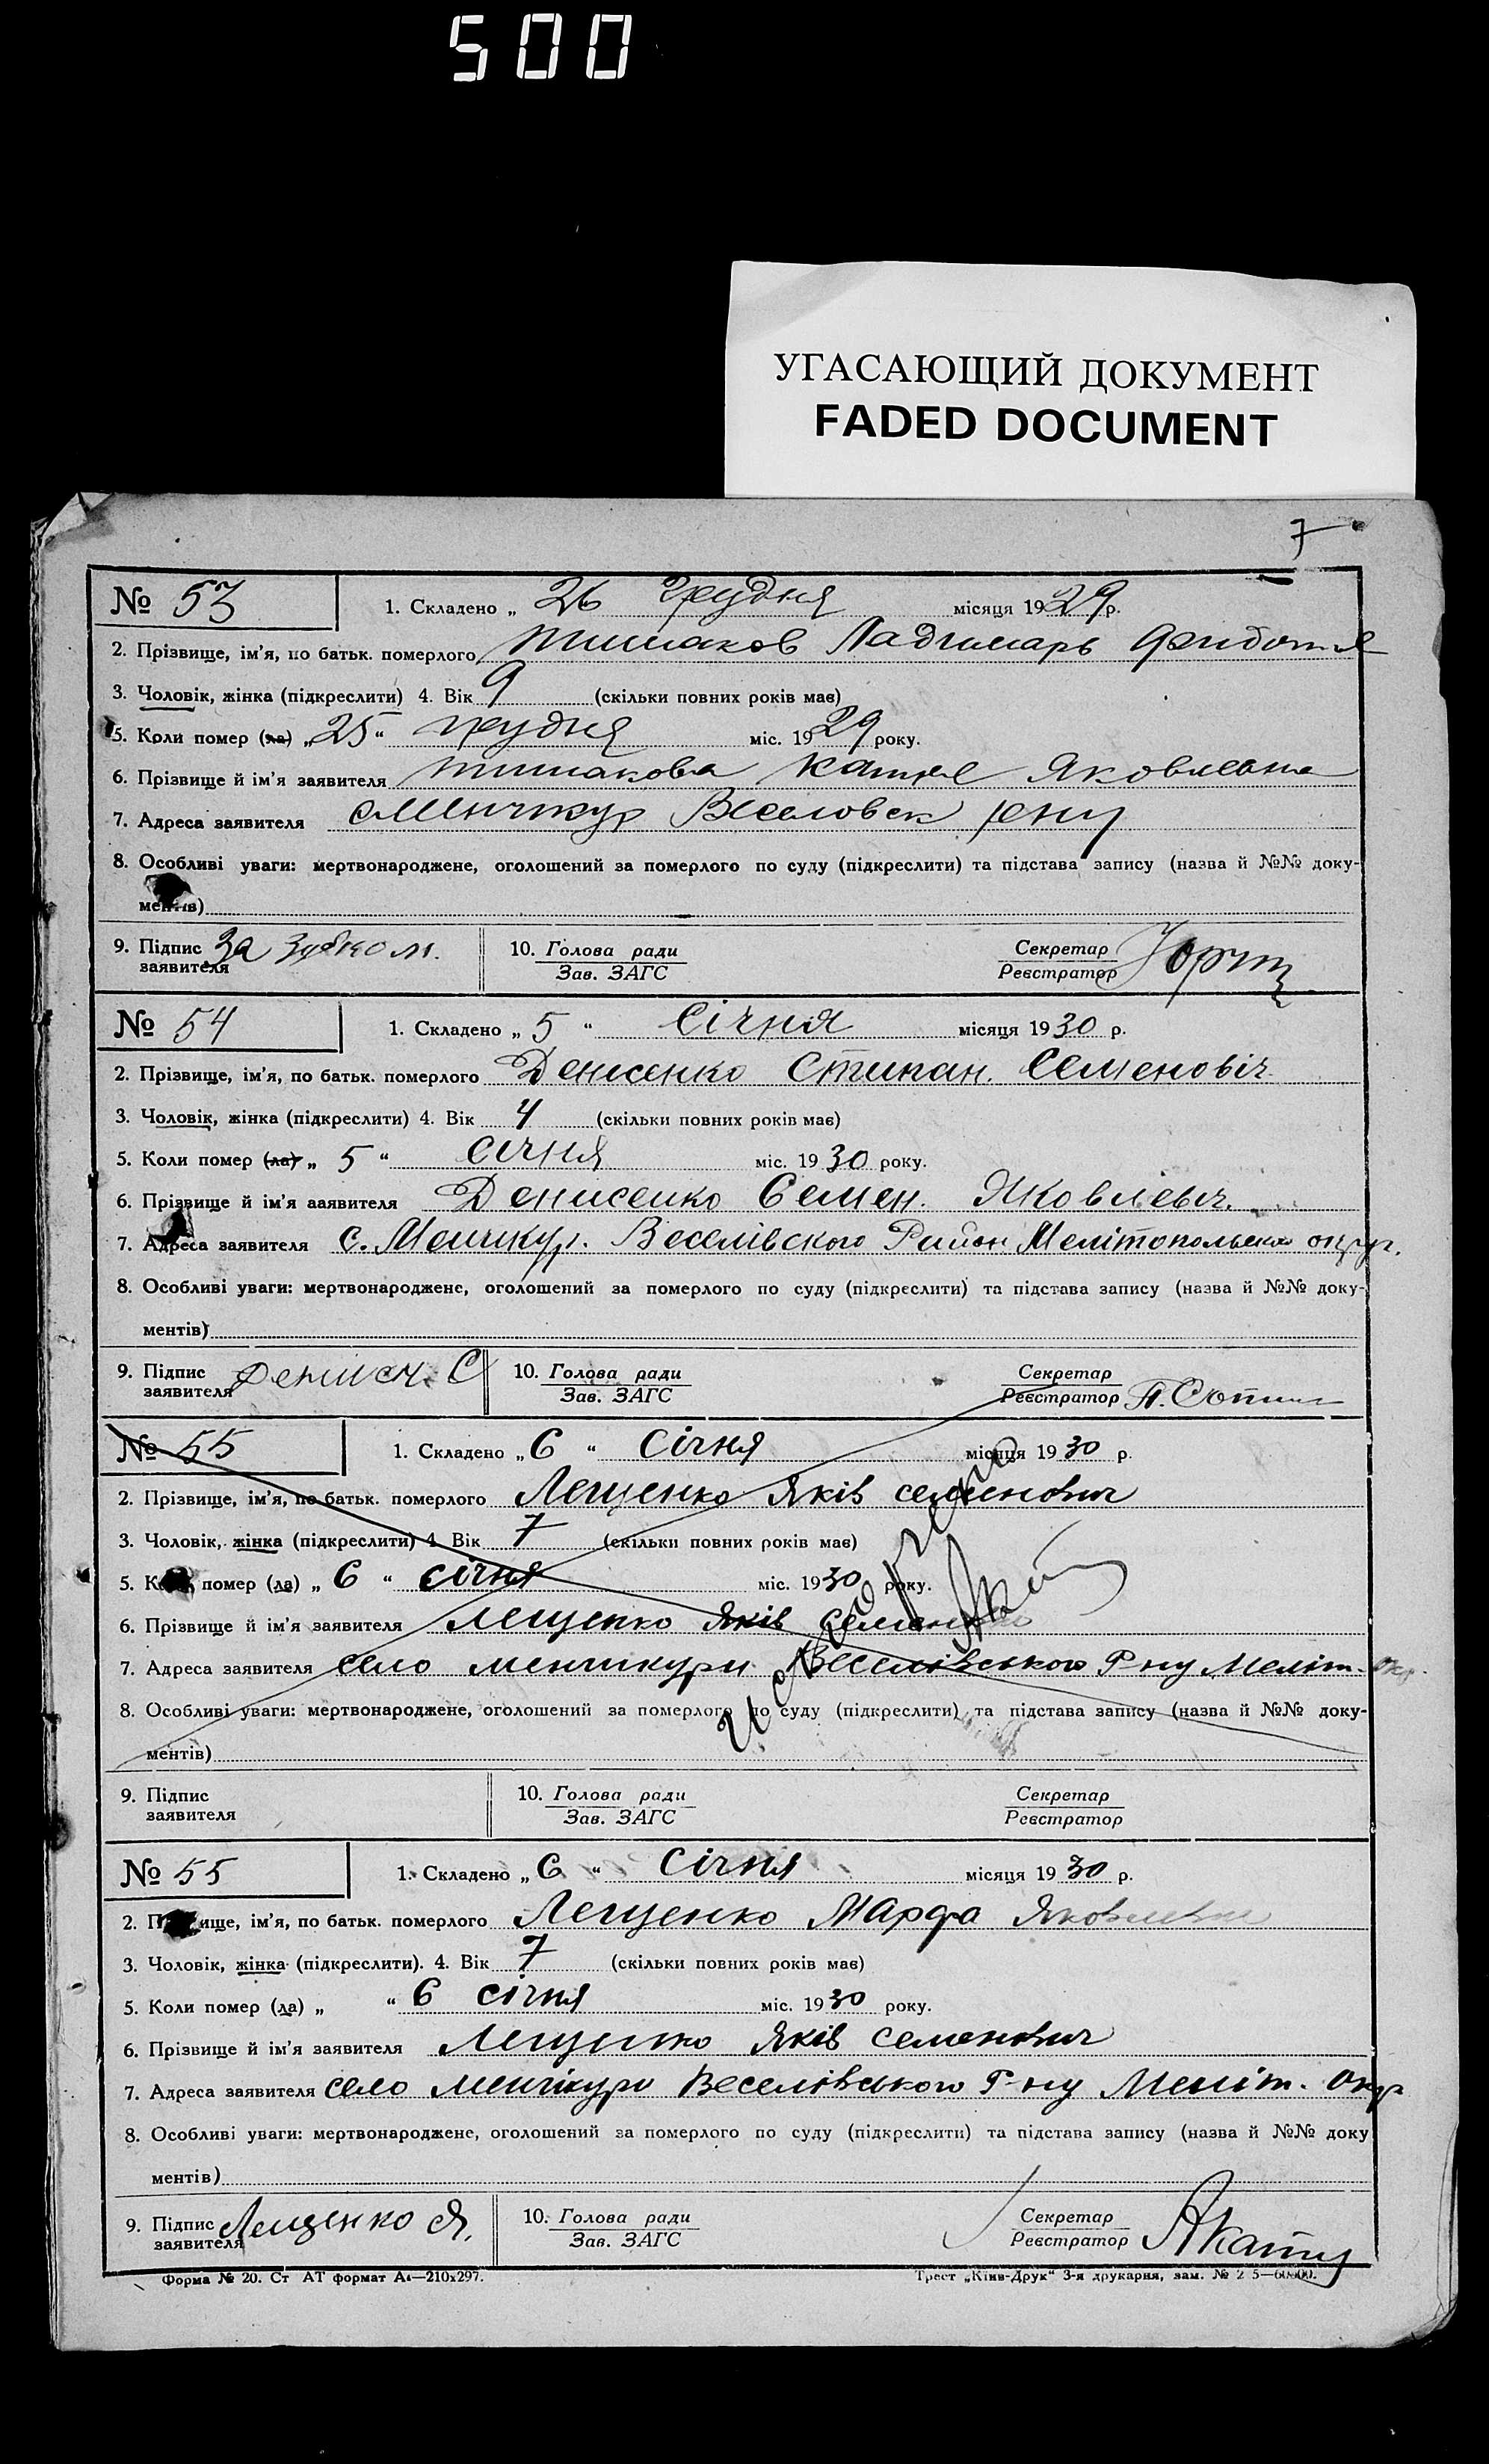 500
УГАСАЮЩИЙ ДОКУМЕНТ
FADED DOCUMENT
7
№ 53 1. Складено „ 26 грудня місяця 1929 р.
2. Прізвище, ім'я, по батьк. померлого Тимаков Ладимарь
3. Чоловік, жінка (підкреслити) 4. Вік 9 (скільки повних років має)
5. Коли помер (ла) „25“ грудня міс. 1929 року.
6. Прізвище й ім'я заявителя Тимакова Яковлевна
7. Адреса заявителя с Менчикур Веселовск рну
8. Особливі уваги: мертвонароджене, оголошений за померлого по суду (підкреслити) та підстава запису (назва й №№ доку-
ментів)
9. Підпис заявителя За 10. Голова ради Секретар
Зав. ЗАГС Реєстратор
№ 54 1. Складено „ 5 “ Січня місяця 1930 р.
2. Прізвище, ім'я, по батьк. померлого Денисенко Стипан. Семеновіч
3. Чоловік, жінка (підкреслити) 4. Вік 4 (скільки повних років має)
5. Коли помер (ла) „ 5 “ січня міс. 1930 року.
6. Прізвище й ім'я заявителя Денисенко Семен. Яковлевич.
7. Адреса заявителя с. Менчикур. Веселівского Район Мелітопольско округ.
8. Особливі уваги: мертвонароджене, оголошений за померлого по суду (підкреслити) та підстава запису (назва й №№ доку-
ментів)
9. Підпис заявителя С 10. Голова ради Секретар
Зав. ЗАГС Реєстратор П.
№ 55 1. Складено „ 6 “ Січня місяця 1930 р.
2. Прізвище, ім'я, по батьк. померлого Лещенко Яків семенович
3. Чоловік, жінка (підкреслити) 4. Вік 7 (скільки повних років має)
5. Коли помер (ла) „ 6 “ січня міс. 1930 року.
6. Прізвище й ім'я заявителя Лещенко Яків
7. Адреса заявителя село менчикури Веселівського Р-ну Меліт. окр.
8. Особливі уваги: мертвонароджене, оголошений за померлого по суду (підкреслити) та підстава запису (назва й №№ доку-
ментів)
9. Підпис заявителя 10. Голова ради Секретар
Зав. ЗАГС Реєстратор
№ 55 1. Складено „ 6 “ Січня місяця 1930 р.
2. Прізвище, ім'я, по батьк. померлого Лещенко Марфа Яковлевна
3. Чоловік, жінка (підкреслити). 4. Вік 7 (скільки повних років має)
5. Коли помер (ла) „ “ 6 січня міс. 1930 року.
6. Прізвище й ім'я заявителя Лещенко Яків семенович
7. Адреса заявителя село менчікури Веселівського Р-ну Меліт. Окр
8. Особливі уваги: мертвонароджене, оголошений за померлого по суду (підкреслити) та підстава запису (назва й №№ доку
ментів)
9. Підпис заявителя Лещенко Я. 10. Голова ради Секретар
Зав. ЗАГС Реєстратор
Форма № 20. Ст АТ формат А4—210х297. Трест „Київ-Друк“ 3-я друкарня, зам. №